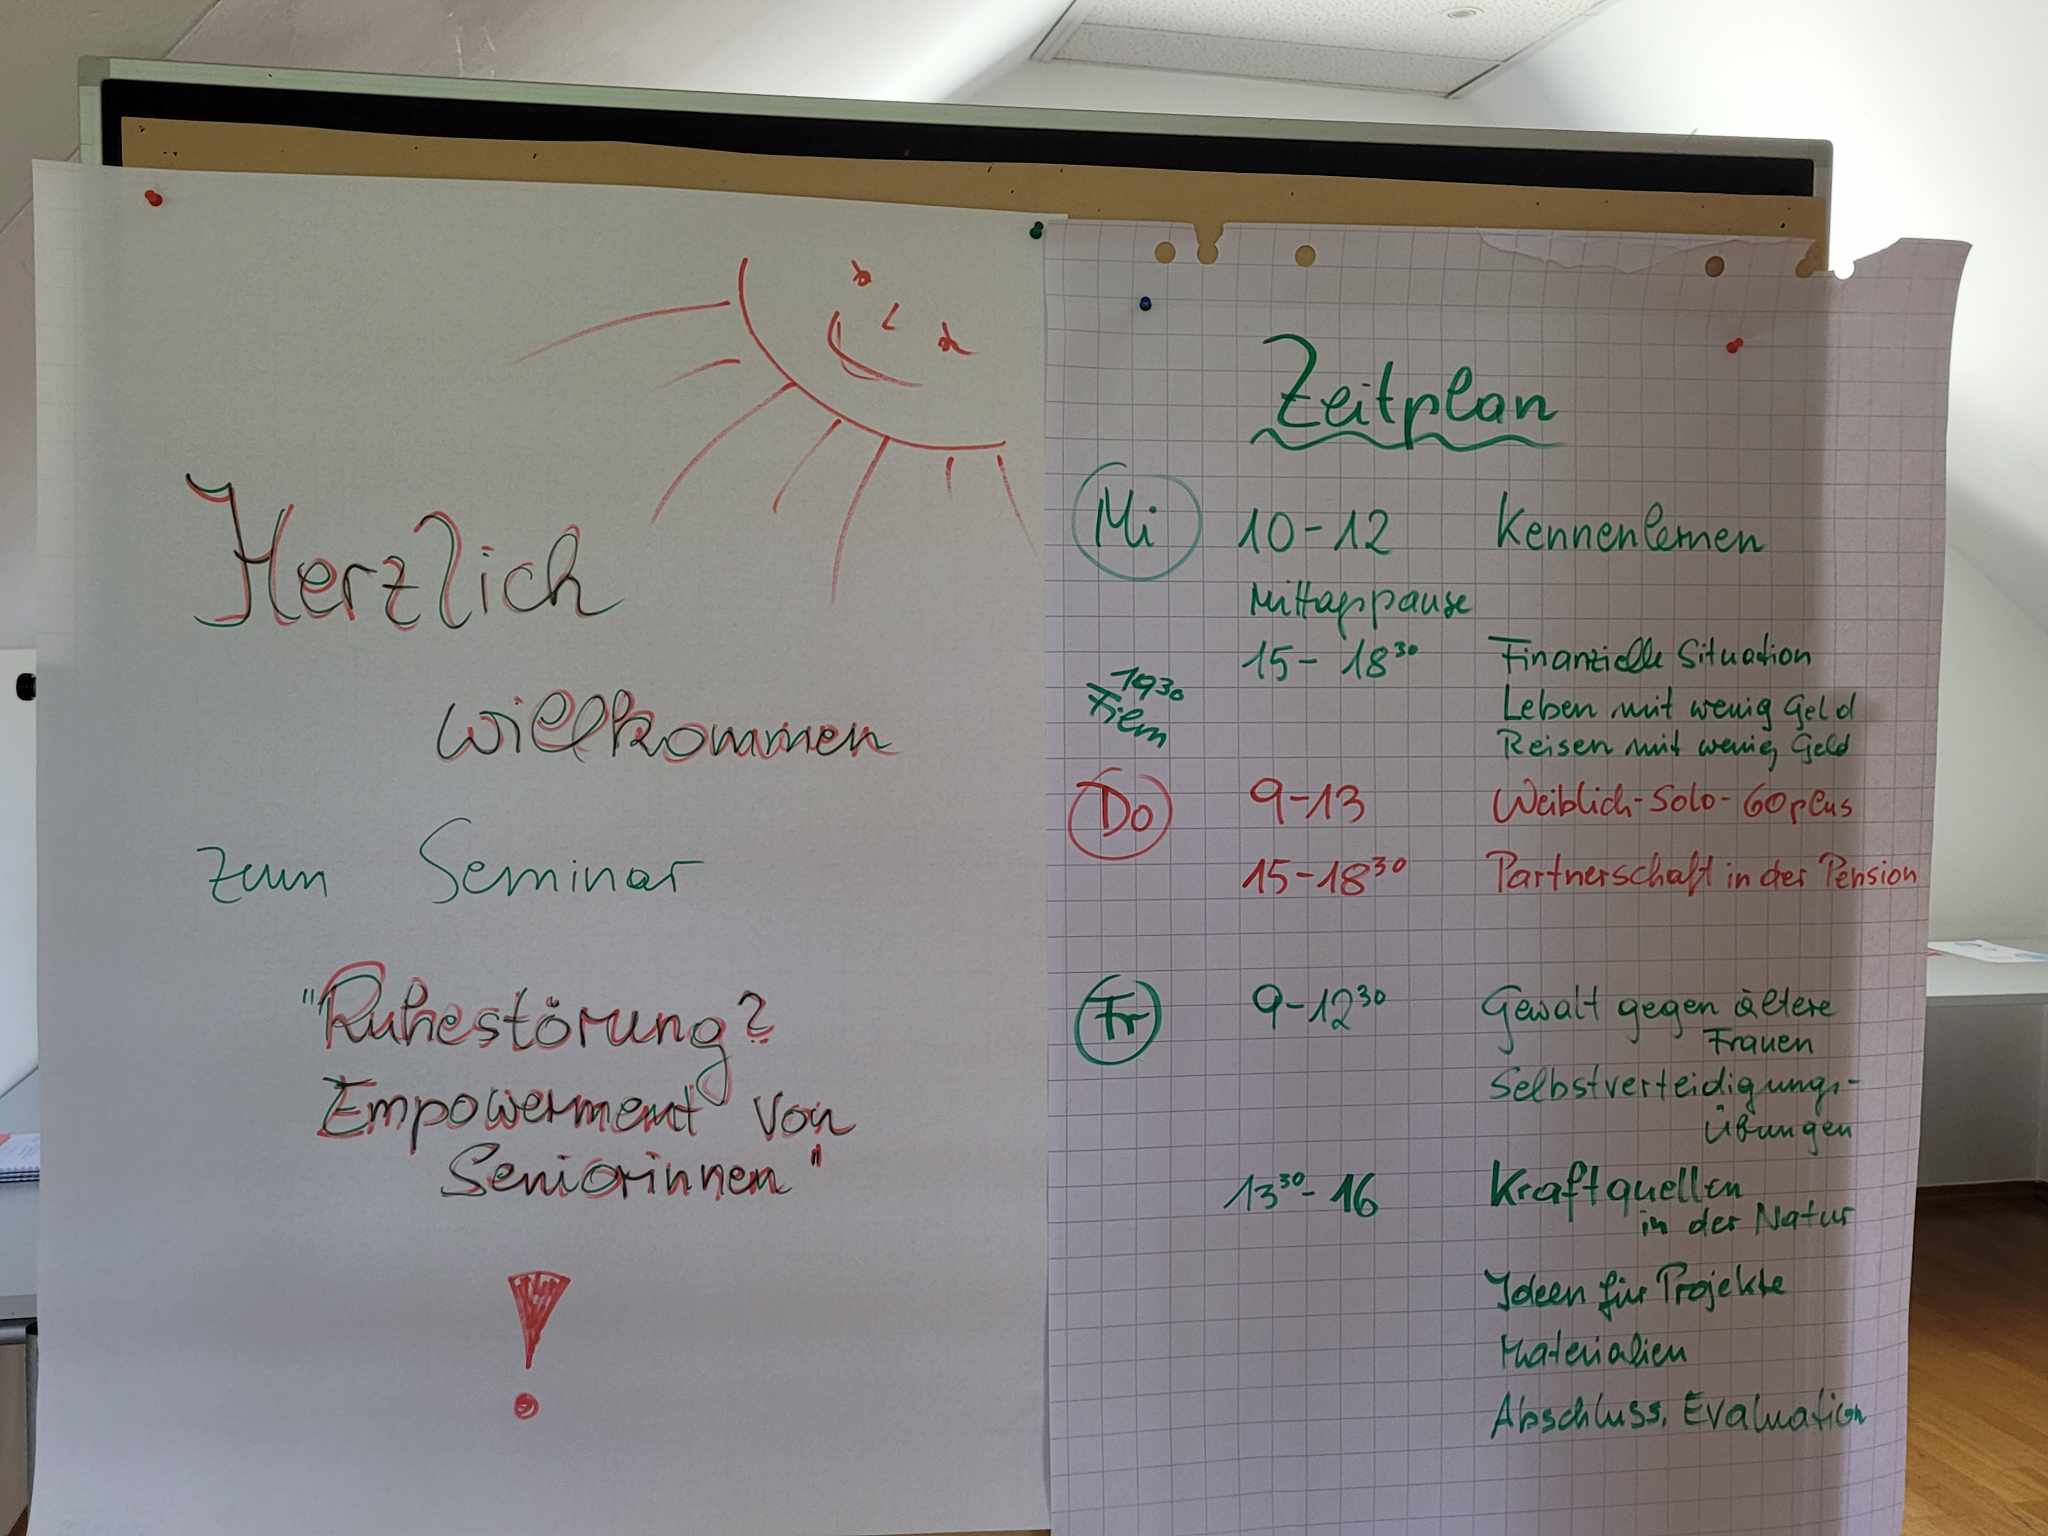 Herzlich
willkommen
zum Seminar
"Ruhestörung?
Empowerment von
Seniorinnen"
!
Zeitplan
Mi 10-12 Kennenlernen
Mittagspause
15-18³⁰ Finanzielle Situation
Leben mit wenig Geld
Reisen mit wenig Geld
19³⁰
Film
Do 9-13 Weiblich-Solo-60plus
15-18³⁰ Partnerschaft in der Pension
Fr 9-12³⁰ Gewalt gegen ältere
Frauen
Selbstverteidigungs-
Übungen
13³⁰-16 Kraftquellen
in der Natur
Ideen für Projekte
Materialien
Abschluss, Evaluation